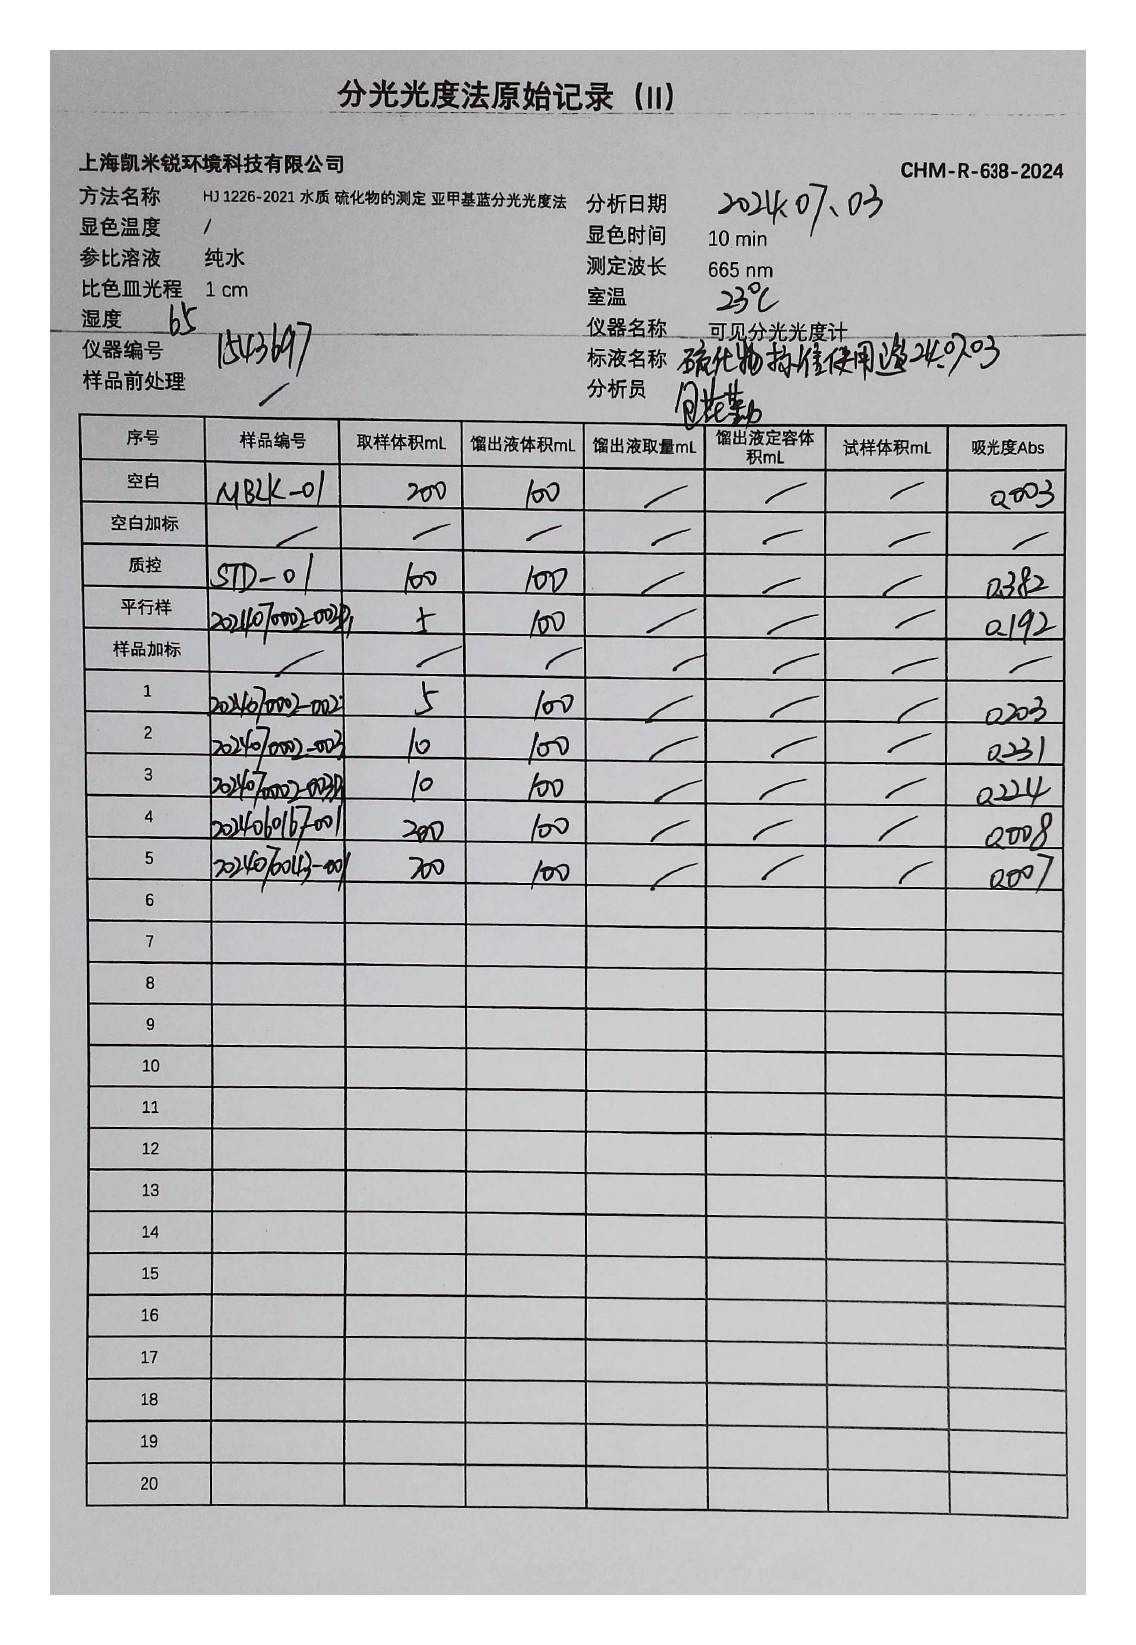 分光光度法原始记录（II）
上海凯米锐环境科技有限公司
CHM-R-638-2024
方法名称 HJ 1226-2021 水质 硫化物的测定 亚甲基蓝分光光度法 分析日期 2024.07.03
显色温度 / 显色时间 10 min
参比溶液 纯水 测定波长 665 nm
比色皿光程 1 cm 室温 23℃
湿度 65 仪器名称 可见分光光度计
仪器编号 1543697 标液名称 硫化物标准使用液24.07.03
样品前处理 / 分析员
序号 样品编号 取样体积mL 馏出液体积mL 馏出液取量mL 馏出液定容体积mL 试样体积mL 吸光度Abs
空白 MBLK-01 200 100 / / / 0.003
空白加标 / / / / / / /
质控 STD-01 100 100 / / / 0.382
平行样 2024070002-002P1 5 100 / / / 0.192
样品加标 / / / / / / /
1 2024070002-002 5 100 / / / 0.203
2 2024070002-003 10 100 / / / 0.231
3 2024070002-003P1 10 100 / / / 0.224
4 2024060167-001 200 100 / / / 0.008
5 2024070043-001 200 100 / / / 0.007
6
7
8
9
10
11
12
13
14
15
16
17
18
19
20